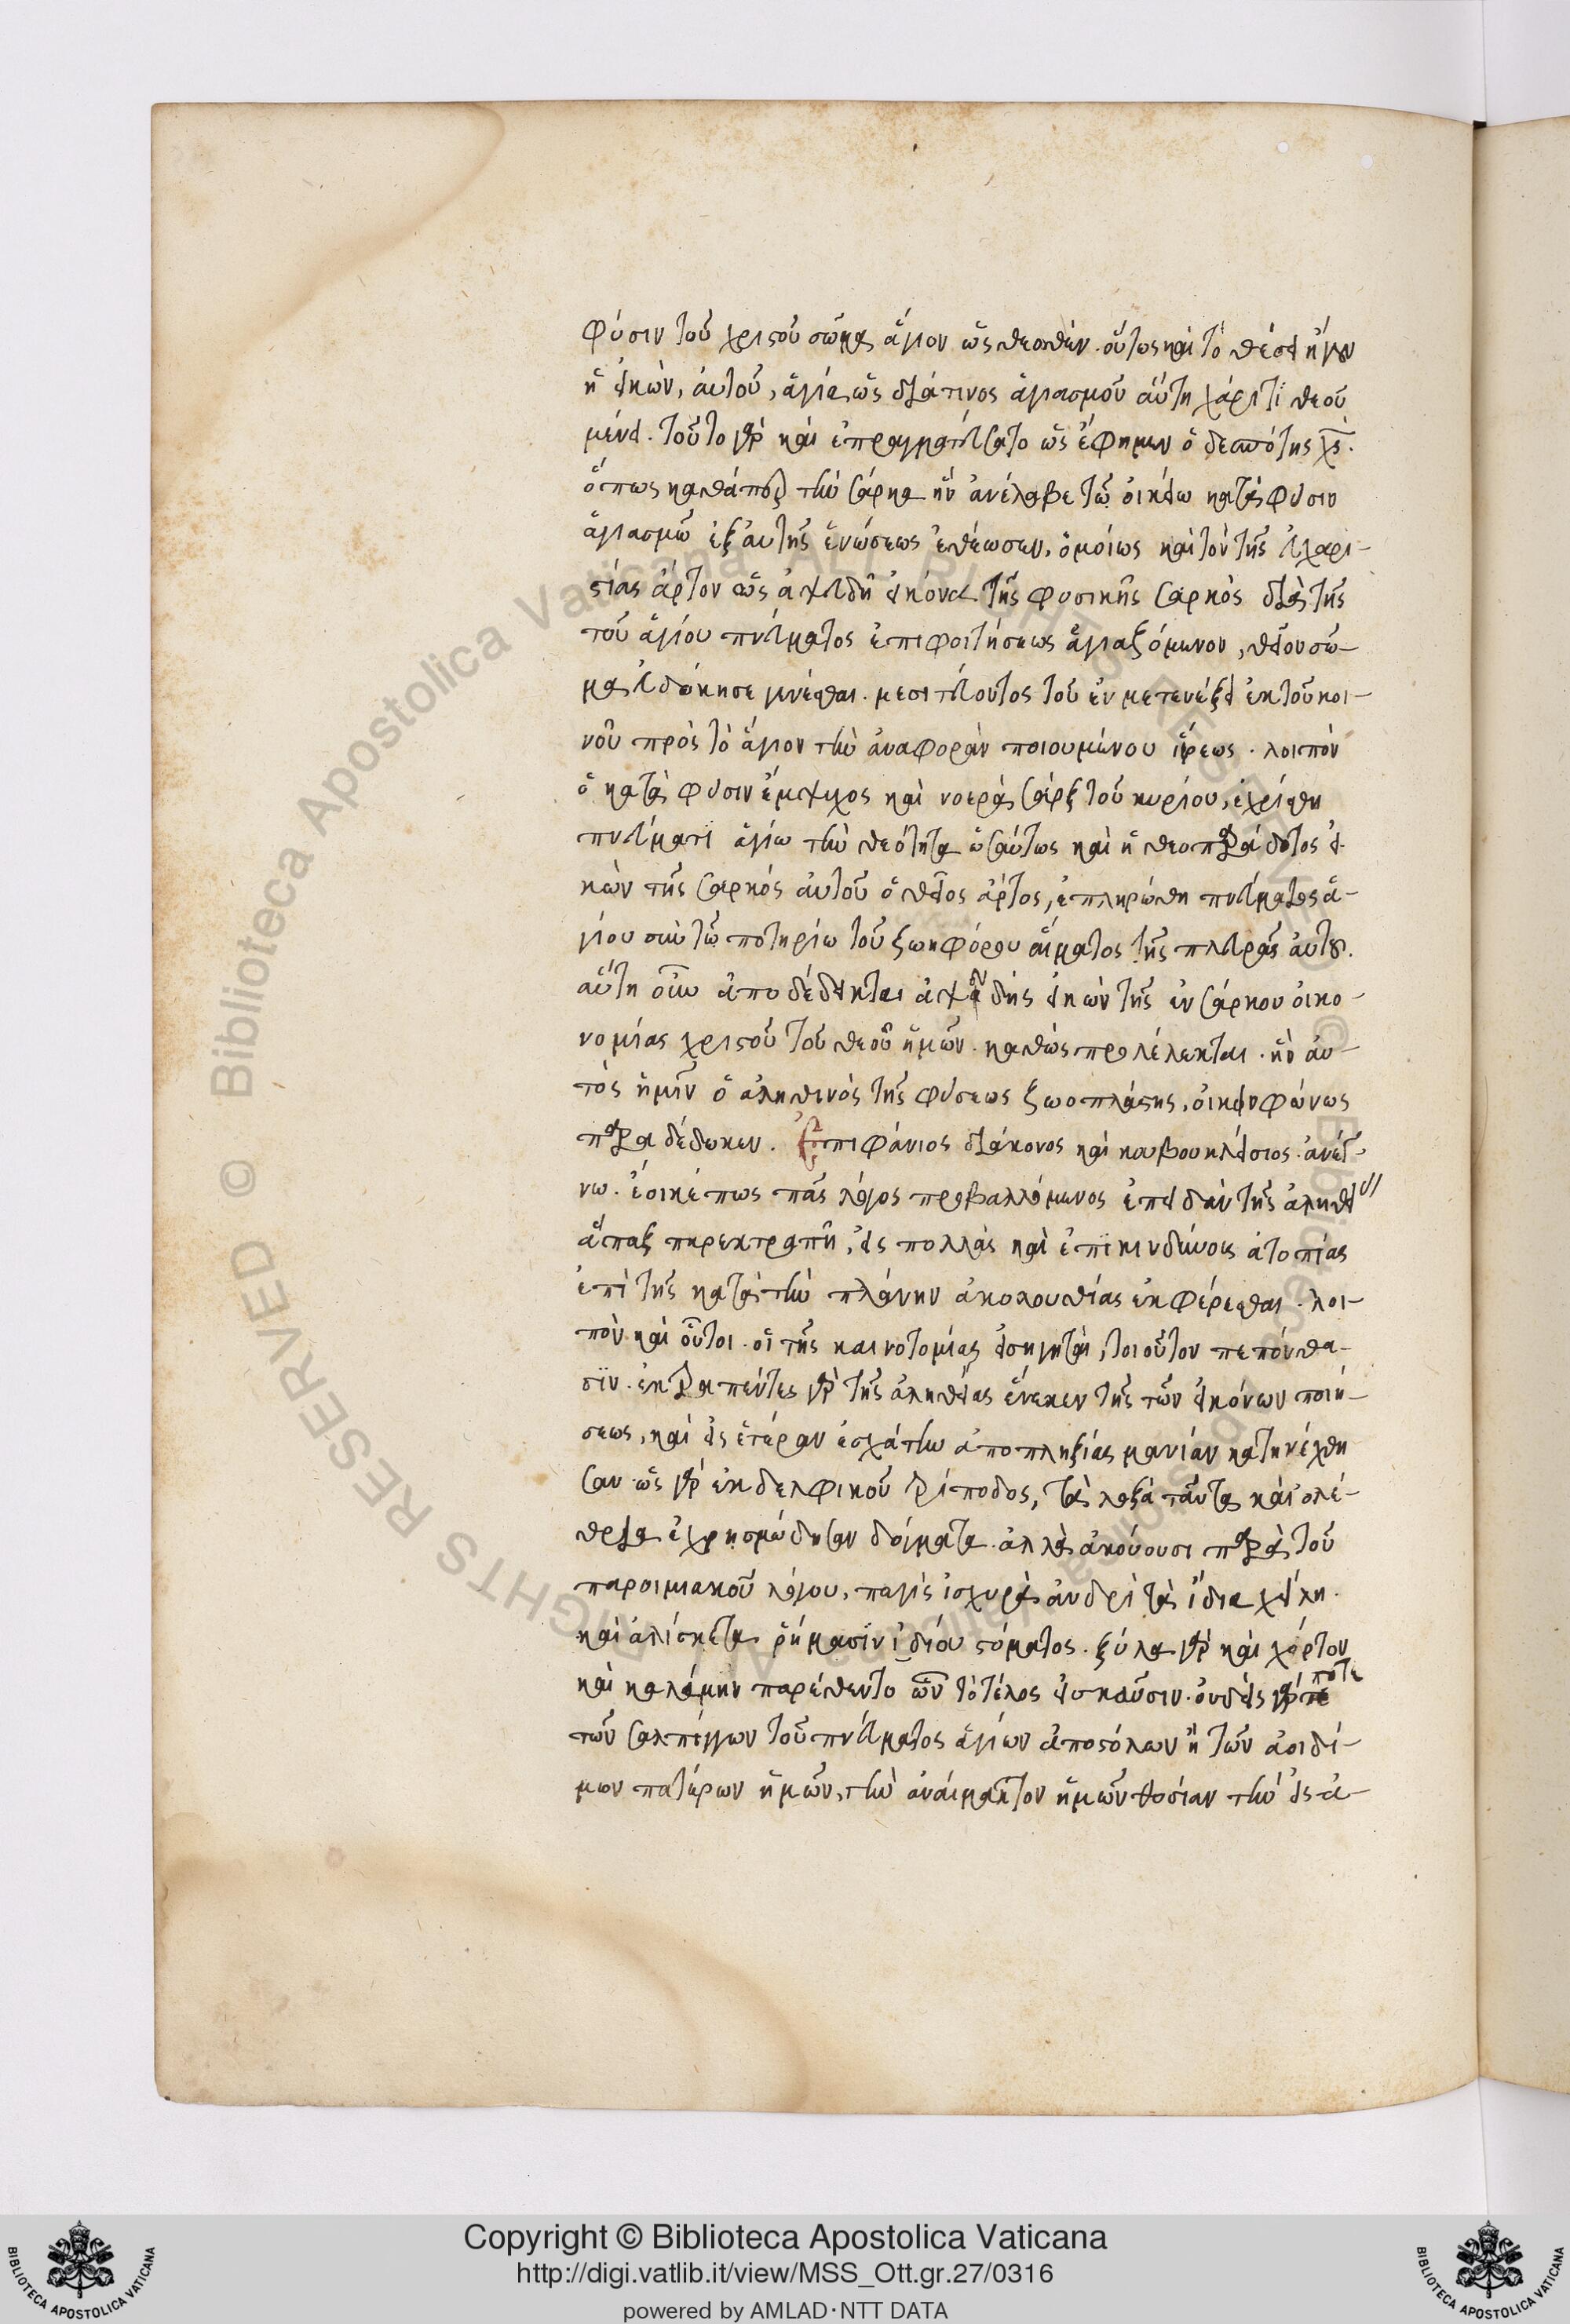 φύσιν τοῦ χριστοῦ σῶμα ἅγιον ὡς θεωθέν. οὕτως καὶ τὸ θέσει ἤγουν
ἡ εἰκὼν, αὐτοῦ, ἁγία, ὡς διά τινος ἁγιασμοῦ αὕτη χάριτι θεου
μένη. τοῦτο γὰρ καὶ ἐπραγματεύσατο ὡς ἔφημεν ὁ δεσπότης χς.
ὅπως καθάπερ τὴν σάρκα ἣν ἀνέλαβε τῷ οἰκείω κατὰ φύσιν
ἁγιασμῶ ἐξ αὐτῆς ἑνώσεως ἐθέωσεν, ὁμοίως καὶ τὸν τῆς εὐχαρι-
στίας ἄρτον ὡς ἀψευδῆ εἰκόνα τῆς φυσικῆς σαρκὸς διὰ τῆς
τοῦ ἁγίου πνεύματος ἐπιφοιτήσεως ἁγιαζόμενον, θεῖον σῶ-
μα εὐδόκησε γινέσθαι. μεσιτεύοντος τοῦ ἐν μετενέξει ἐκ τοῦ κοι-
νοῦ πρὸς τὸ ἅγιον τὴν ἀναφορὰν ποιουμένου ἱερέως. λοιπὸν
ὁ κατὰ φύσιν ἔμψυχος καὶ νοερὰ σὰρξ τοῦ κυρίου, ἐχρίσθη
πνεύματι ἁγίω τὴν θεότητα ὡσαύτως καὶ ἡ θεοπαράδοτος εἰ
κὼν τῆς σαρκός αὐτοῦ ὁ θεῖος ἄρτος, ἐπληρώθη πνεύματος ἁ-
γίου σὺν τῷ ποτηρίω τοῦ ζωηφόρου αἵματος τῆς πλευρᾶς αὐτοῦ.
αὕτη οὖν ἀποδέδεικται ἀψευδὴς εἰκὼν τῆς ἐνσάρκου οἰκο-
νομίας χριστοῦ τοῦ θεοῦ ἡμῶν. καθὼς προλέλεκται. ἣν αὐ-
τὸς ἡμῖν ὁ ἀληθινὸς τῆς φύσεως ζωοπλάστης, οἰκειοφώνως
παραδέδωκεν. Ἐπιφάνιος διάκονος καὶ κουβουκλείσιος ἀνέγ-
νω. ἔοικέ πως πᾶς λόγος προβαλλόμενος ἐπειδὰν τῆς ἀληθεί
ἅπαξ παρεκτραπῆ, εἰς πολλὰς καὶ ἐπικινδύνους ἀτοπίας
ἐπὶ τῆς κατὰ τὴν πλάνην ἀκολουθίας ἐκφέρεσθαι. λοι-
πὸν καὶ οὗτοι οἱ τῆς καινοτομίας εἰσηγηταὶ, τοιοῦτον πεπόνθα-
σιν. ἐκτραπέντες γὰρ τῆς ἀληθείας ἕνεκεν τῆς τῶν εἰκόνων ποιή-
σεως, καὶ εἰς ἑτέραν ἐσχάτην ἀποπληξίας μανίαν κατηνέχθη
σαν ὡς γὰρ ἐκ δελφικοῦ τρίποδος, τὰ λοξὰ ταῦτα καὶ ὀλέ-
θρια ἐχρησμώδησαν δόγματα. ἀλλὰ ἀκούουσι παρὰ τοῦ
παροιμιακοῦ λόγου, παγὶς ἰσχυρὰ ἀνδρὶ τὰ ἴδια χείλη.
καὶ ἁλίσκεται ῥήμασιν ἰδίου στόματος. ξύλα γὰρ καὶ χόρτον
καὶ καλάμην παρέθεντο ὧν τὸ τέλος εἰς καῦσιν. οὐδεὶς γὰρ ποτε
τῶν σαλπίγγων τοῦ πνεύματος ἁγίων ἀποστόλων ἢ τῶν ἀοιδί-
μων πατέρων ἡμῶν, τὴν ἀναίμακτον ἡμῶν θυσίαν τὴν εἰς ἀ-
Copyright © Biblioteca Apostolica Vaticana
http://digi.vatlib.it/view/MSS_Ott.gr.27/0316
powered by AMLAD·NTT DATA